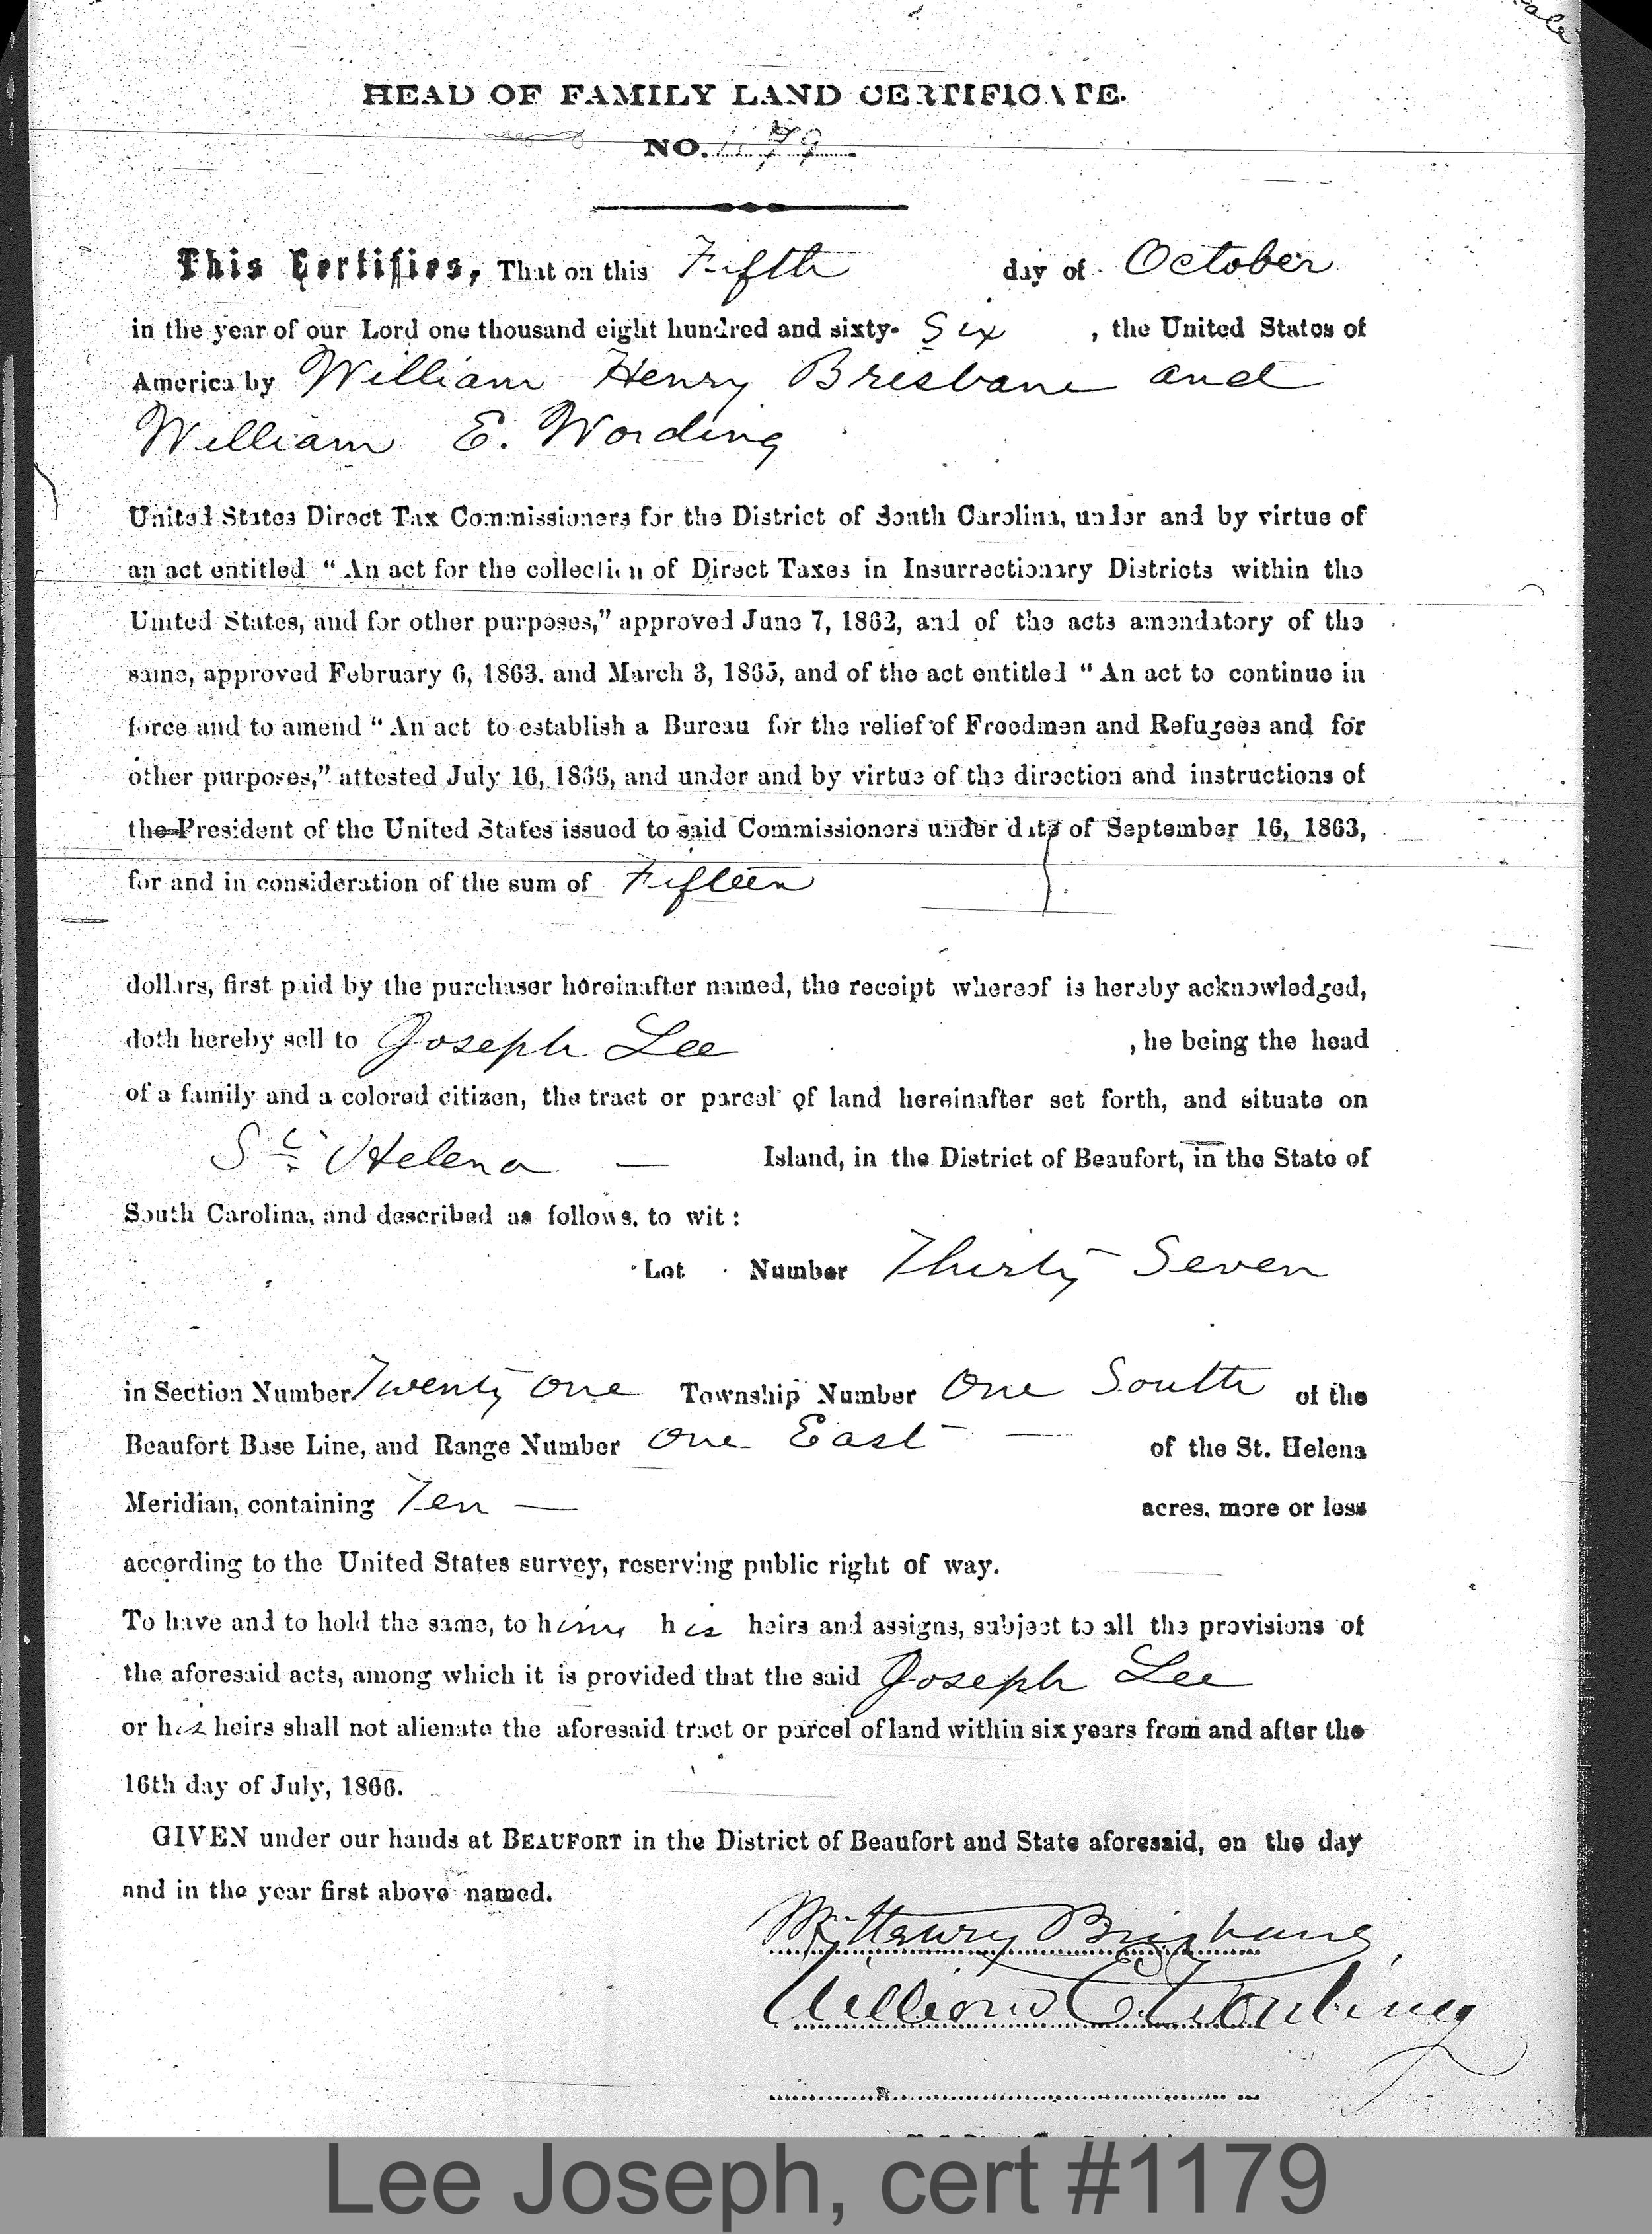 HEAD OF FAMILY LAND CERTIFICATE.
NO. 1179
This Certifies, That on this Fifth day of October
in the year of our Lord one thousand eight hundred and sixty- Six , the United States of
America by William Henry Brisbane and
William E. Wording
United States Direct Tax Commissioners for the District of South Carolina, under and by virtue of
an act entitled "An act for the collection of Direct Taxes in Insurrectionary Districts within the
United States, and for other purposes," approved June 7, 1862, and of the acts amendatory of the
same, approved February 6, 1863. and March 3, 1865, and of the act entitled "An act to continue in
force and to amend "An act to establish a Bureau for the relief of Freedmen and Refugees and for
other purposes," attested July 16, 1866, and under and by virtue of the direction and instructions of
the President of the United States issued to said Commissioners under date of September 16, 1863,
for and in consideration of the sum of Fifteen
dollars, first paid by the purchaser hereinafter named, the receipt whereof is hereby acknowledged,
doth hereby sell to Joseph Lee , he being the head
of a family and a colored citizen, the tract or parcel of land hereinafter set forth, and situate on
St. Helena — Island, in the District of Beaufort, in the State of
South Carolina, and described as follows, to wit:
Lot Number Thirty Seven
in Section Number Twenty One Township Number One South of the
Beaufort Base Line, and Range Number One East — of the St. Helena
Meridian, containing Ten — acres, more or less
according to the United States survey, reserving public right of way.
To have and to hold the same, to him, his heirs and assigns, subject to all the provisions of
the aforesaid acts, among which it is provided that the said Joseph Lee
or his heirs shall not alienate the aforesaid tract or parcel of land within six years from and after the
16th day of July, 1866.
GIVEN under our hands at BEAUFORT in the District of Beaufort and State aforesaid, on the day
and in the year first above named.
Wm Henry Brisbane
William E. Wording
Lee Joseph, cert #1179